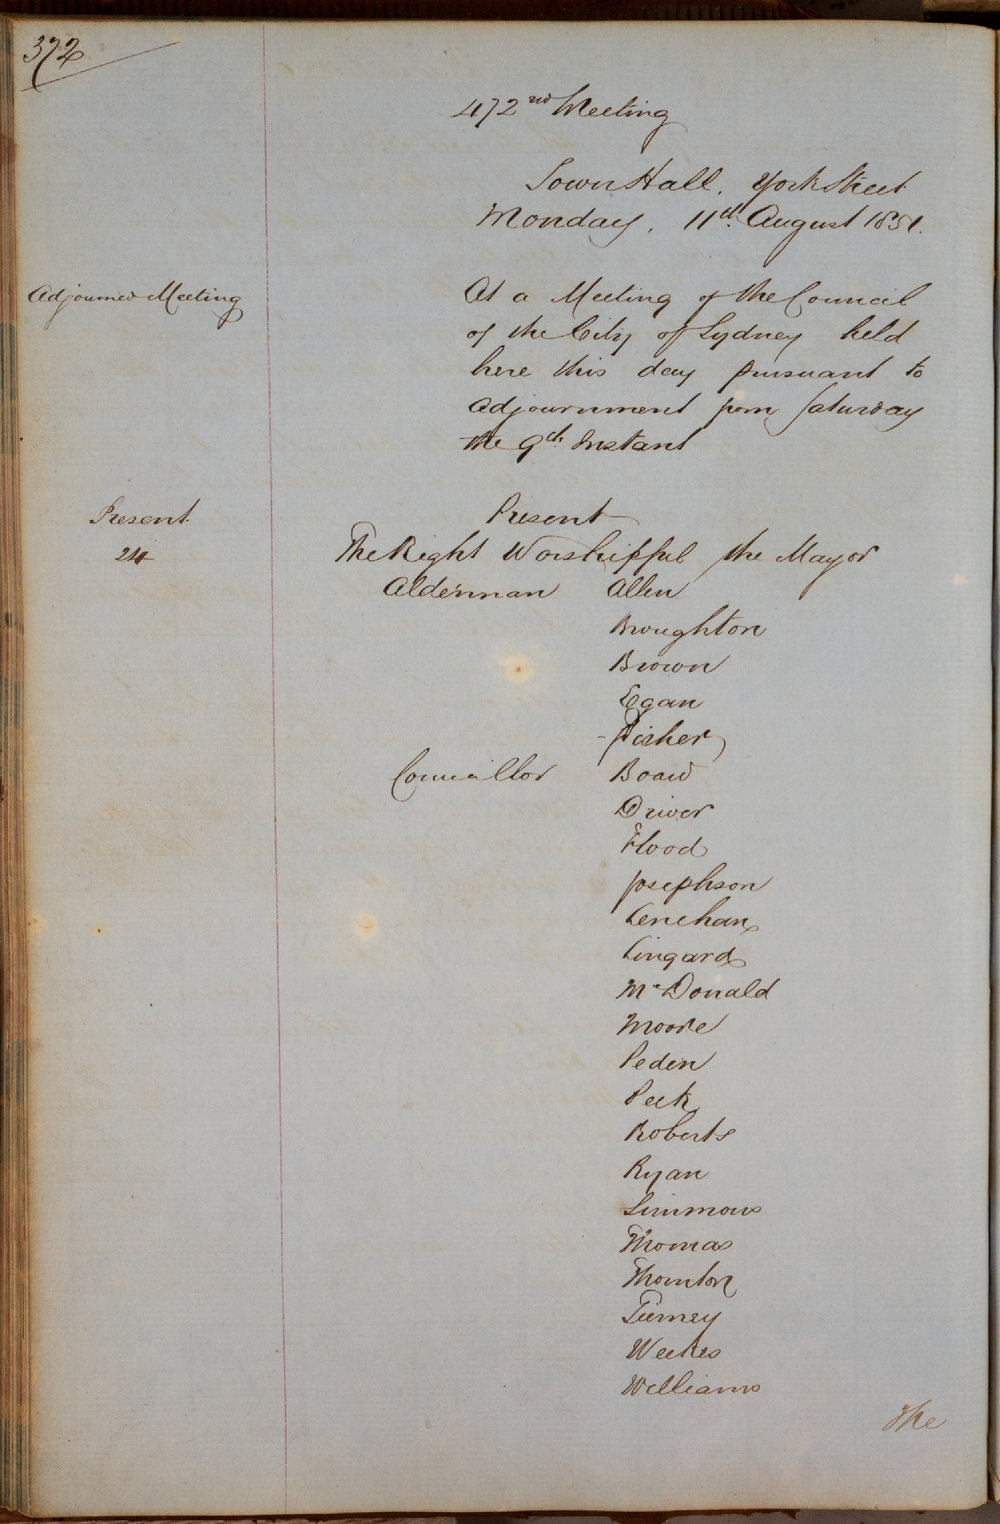 372
472nd Meeting
Town Hall. York Street
Monday, 11th August 1851.
Adjourned Meeting
At a Meeting of the Council
of the City of Sydney held
here this day pursuant to
adjournment from Saturday
the 9th Instant
Present
24
Present
The Right Worshipful the Mayor
Alderman Allen
Broughton
Brown
Egan
Fisher
Councillor Board
Driver
Flood
Josephson
Lenehan
Lingard
McDonald
Moore
Peden
Peek
Roberts
Ryan
Simmons
Thomas
Thornton
Tierney
Weekes
Williams
The